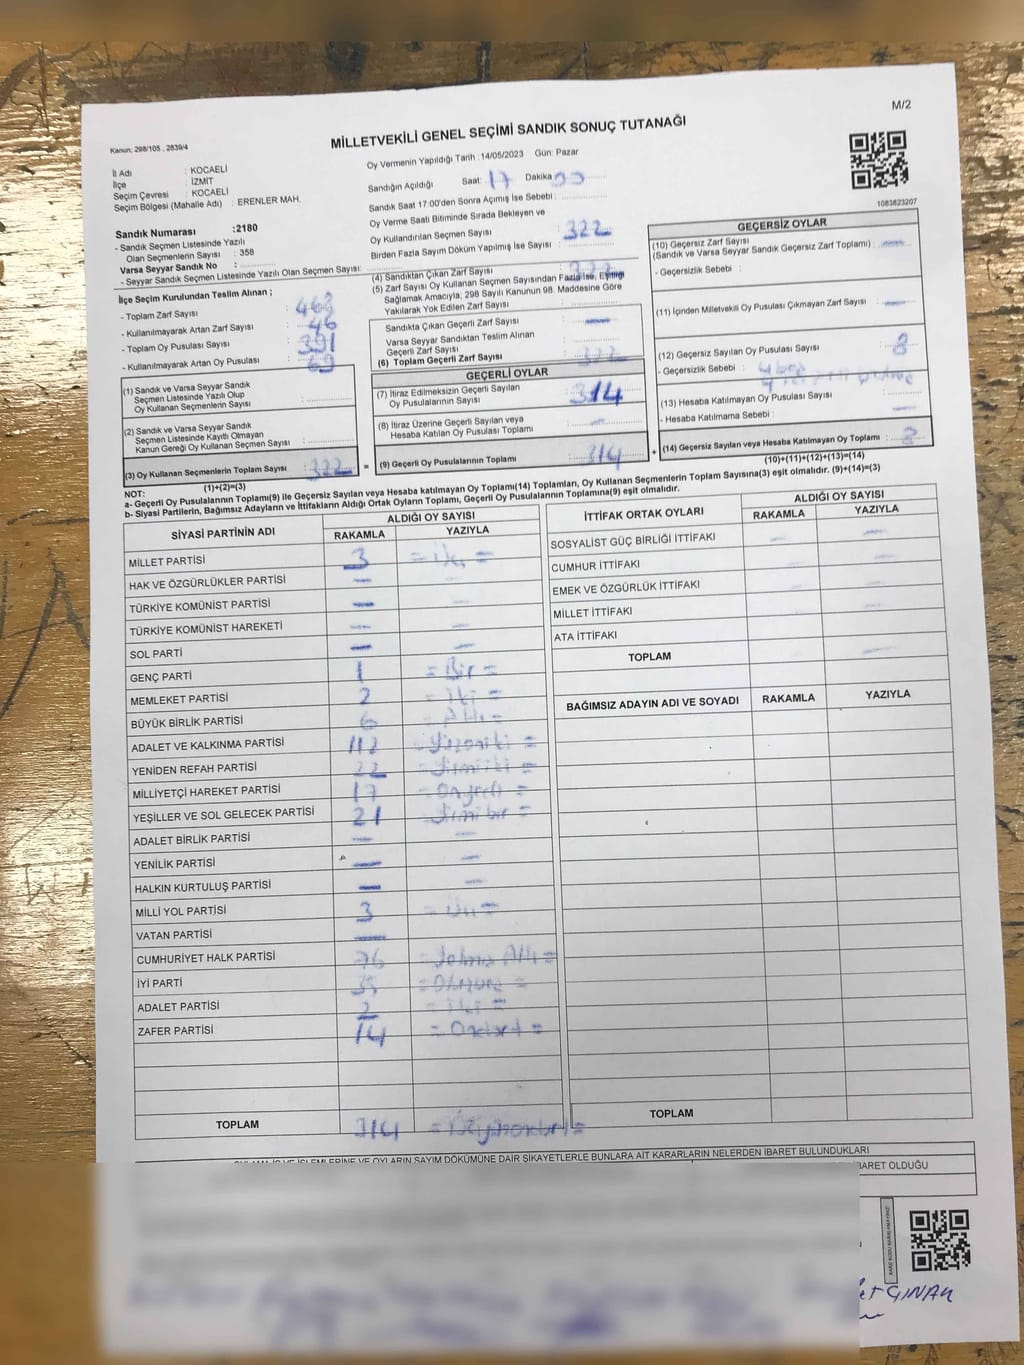 M/2
MİLLETVEKİLİ GENEL SEÇİMİ SANDIK SONUÇ TUTANAĞI
Kanun: 298/105 , 2839/4
İl Adı : KOCAELİ
İlçe : İZMİT
Seçim Çevresi : KOCAELİ
Seçim Bölgesi (Mahalle Adı) : ERENLER MAH.
Sandık Numarası :2180
- Sandık Seçmen Listesinde Yazılı
Olan Seçmenlerin Sayısı : 358
Varsa Seyyar Sandık No :
- Seyyar Sandık Seçmen Listesinde Yazılı Olan Seçmen Sayısı:
Oy Vermenin Yapıldığı Tarih :14/05/2023 Gün: Pazar
Sandığın Açıldığı Saat: 17 Dakika
Sandık Saat 17:00'den Sonra Açılmış İse Sebebi :
Oy Verme Saati Bitiminde Sırada Bekleyen ve
Oy Kullandırılan Seçmen Sayısı : 322
Birden Fazla Sayım Döküm Yapılmış İse Sayısı :
1083823207
İlçe Seçim Kurulundan Teslim Alınan ;
- Toplam Zarf Sayısı :
- Kullanılmayarak Artan Zarf Sayısı : 46
- Toplam Oy Pusulası Sayısı : 391
- Kullanılmayarak Artan Oy Pusulası :
(1) Sandık ve Varsa Seyyar Sandık
Seçmen Listesinde Yazılı Olup
Oy Kullanan Seçmenlerin Sayısı :
(2) Sandık ve Varsa Seyyar Sandık
Seçmen Listesinde Kayıtlı Olmayan
Kanun Gereği Oy Kullanan Seçmen Sayısı :
(3) Oy Kullanan Seçmenlerin Toplam Sayısı : 322 =
(1)+(2)=(3)
(4) Sandıktan Çıkan Zarf Sayısı : 322
(5) Zarf Sayısı Oy Kullanan Seçmen Sayısından Fazla İse, Eşitliği
Sağlamak Amacıyla, 298 Sayılı Kanunun 98. Maddesine Göre
Yakılarak Yok Edilen Zarf Sayısı :
Sandıkta Çıkan Geçerli Zarf Sayısı : —
Varsa Seyyar Sandıktan Teslim Alınan
Geçerli Zarf Sayısı :
(6) Toplam Geçerli Zarf Sayısı : 322
GEÇERLİ OYLAR
(7) İtiraz Edilmeksizin Geçerli Sayılan
Oy Pusulalarının Sayısı : 314
(8) İtiraz Üzerine Geçerli Sayılan veya
Hesaba Katılan Oy Pusulası Toplamı : —
(9) Geçerli Oy Pusulalarının Toplamı : 314 +
GEÇERSİZ OYLAR
(10) Geçersiz Zarf Sayısı : —
(Sandık ve Varsa Seyyar Sandık Geçersiz Zarf Toplamı)
- Geçersizlik Sebebi :
(11) İçinden Milletvekili Oy Pusulası Çıkmayan Zarf Sayısı : —
(12) Geçersiz Sayılan Oy Pusulası Sayısı : 8
- Geçersizlik Sebebi :
(13) Hesaba Katılmayan Oy Pusulası Sayısı : —
- Hesaba Katılmama Sebebi :
(14) Geçersiz Sayılan veya Hesaba Katılmayan Oy Toplamı : 8
(10)+(11)+(12)+(13)=(14)
NOT:
a- Geçerli Oy Pusulalarının Toplamı(9) ile Geçersiz Sayılan veya Hesaba katılmayan Oy Toplamı(14) Toplamları, Oy Kullanan Seçmenlerin Toplam Sayısına(3) eşit olmalıdır. (9)+(14)=(3)
b- Siyasi Partilerin, Bağımsız Adayların ve İttifakların Aldığı Ortak Oyların Toplamı, Geçerli Oy Pusulalarının Toplamına(9) eşit olmalıdır.
SİYASİ PARTİNİN ADI ALDIĞI OY SAYISI
RAKAMLA YAZIYLA
MİLLET PARTİSİ 3
HAK VE ÖZGÜRLÜKLER PARTİSİ — —
TÜRKİYE KOMÜNİST PARTİSİ — —
TÜRKİYE KOMÜNİST HAREKETİ — —
SOL PARTİ — —
GENÇ PARTİ 1 = Bir =
MEMLEKET PARTİSİ 2 = İki =
BÜYÜK BİRLİK PARTİSİ 6 = Altı =
ADALET VE KALKINMA PARTİSİ 112 = Yüzoniki =
YENİDEN REFAH PARTİSİ 22 = Yirmiiki =
MİLLİYETÇİ HAREKET PARTİSİ 17 = Onyedi =
YEŞİLLER VE SOL GELECEK PARTİSİ 21 = Yirmibir =
ADALET BİRLİK PARTİSİ — —
YENİLİK PARTİSİ — —
HALKIN KURTULUŞ PARTİSİ — —
MİLLİ YOL PARTİSİ 3 = Üç =
VATAN PARTİSİ —
CUMHURİYET HALK PARTİSİ 76
İYİ PARTİ 35
ADALET PARTİSİ 2 = İki =
ZAFER PARTİSİ 14 = Ondört =
TOPLAM 314 = Üçyüzondört =
İTTİFAK ORTAK OYLARI ALDIĞI OY SAYISI
RAKAMLA YAZIYLA
SOSYALİST GÜÇ BİRLİĞİ İTTİFAKI — —
CUMHUR İTTİFAKI — —
EMEK VE ÖZGÜRLÜK İTTİFAKI — —
MİLLET İTTİFAKI — —
ATA İTTİFAKI
TOPLAM —
BAĞIMSIZ ADAYIN ADI VE SOYADI RAKAMLA YAZIYLA
TOPLAM
İŞLEMLERİNE VE OYLARIN SAYIM DÖKÜMÜNE DAİR ŞİKAYETLERLE BUNLARA AİT KARARLARIN NELERDEN İBARET BULUNDUKLARI
İBARET OLDUĞU
ÇINAR